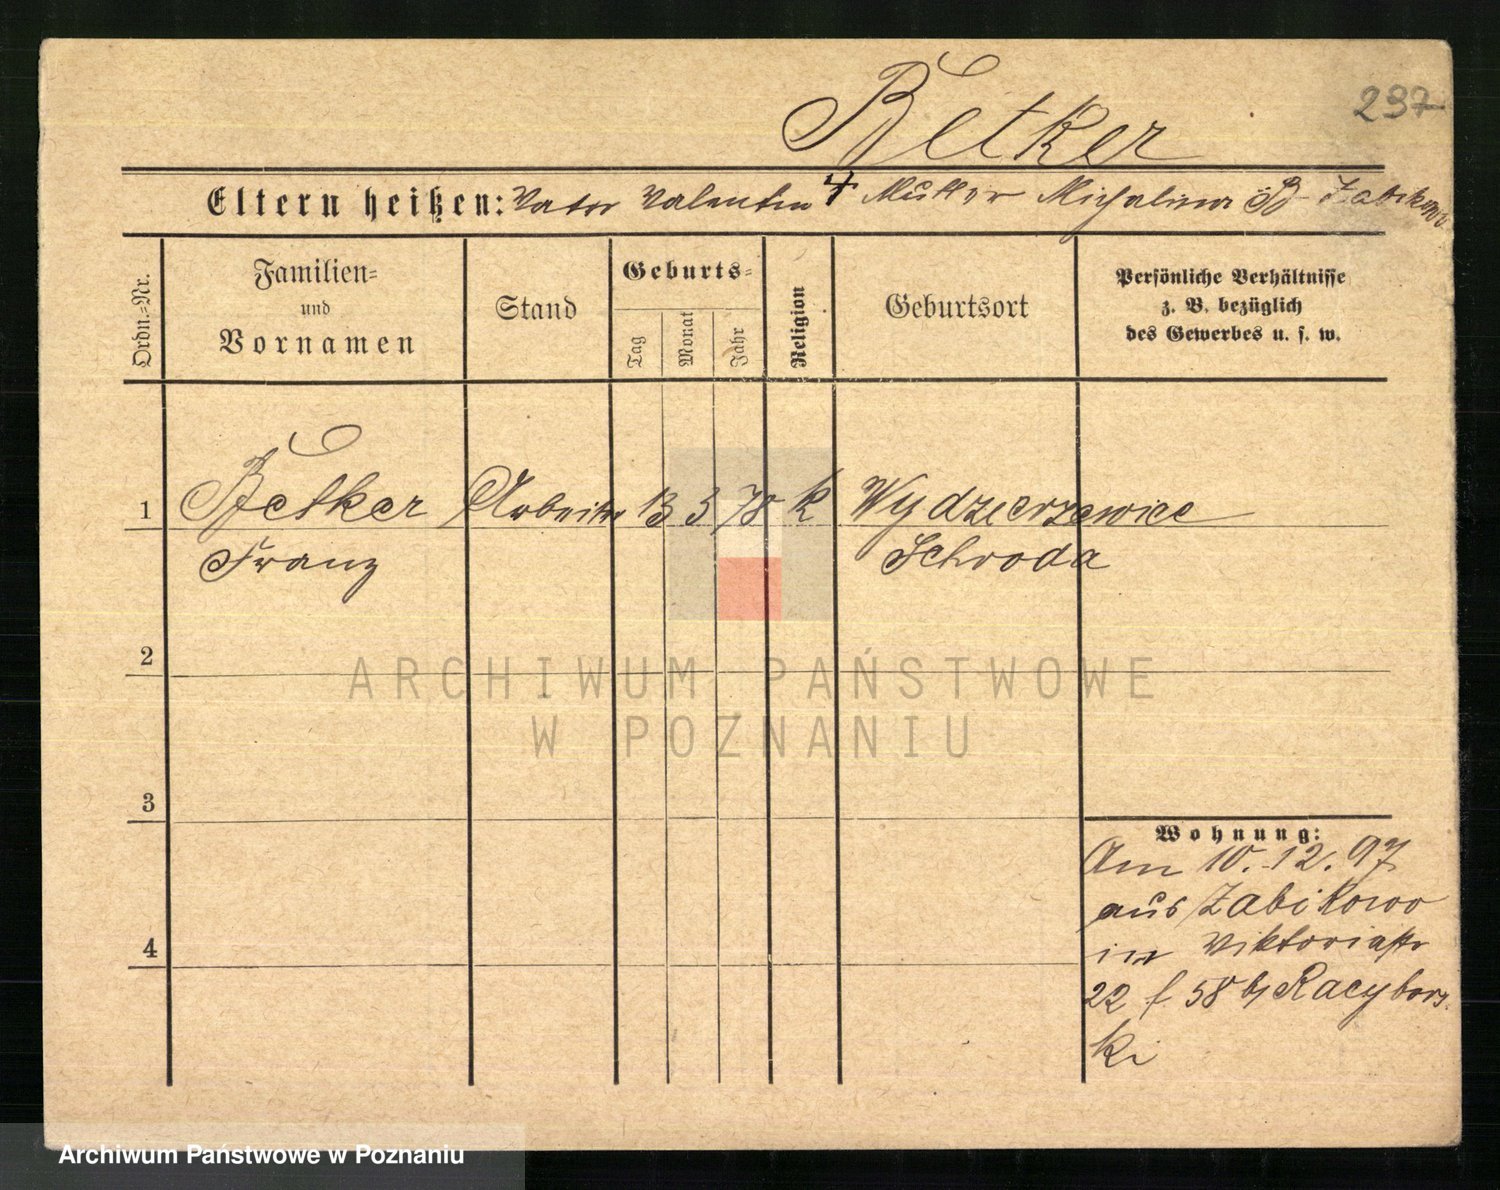 Betker
237
Eltern heißen: Vater Valentin † Mutter Michalina Zabikowo
Ordn.-Nr.
Familien-
und
Vornamen
Stand
Geburts-
Tag
Monat
Jahr
Religion
Geburtsort
Persönliche Verhältnisse
z. B. bezüglich
des Gewerbes u. s. w.
1 Betker Arbeiter 13 3 78 k Wydzierzewice
Franz Schroda
2
3
4
Wohnung:
Am 10.12.97
aus Zabikowo
in Viktoriastr
22 f 58 b Racybors
ki
ARCHIWUM PAŃSTWOWE
W POZNANIU
Archiwum Państwowe w Poznaniu